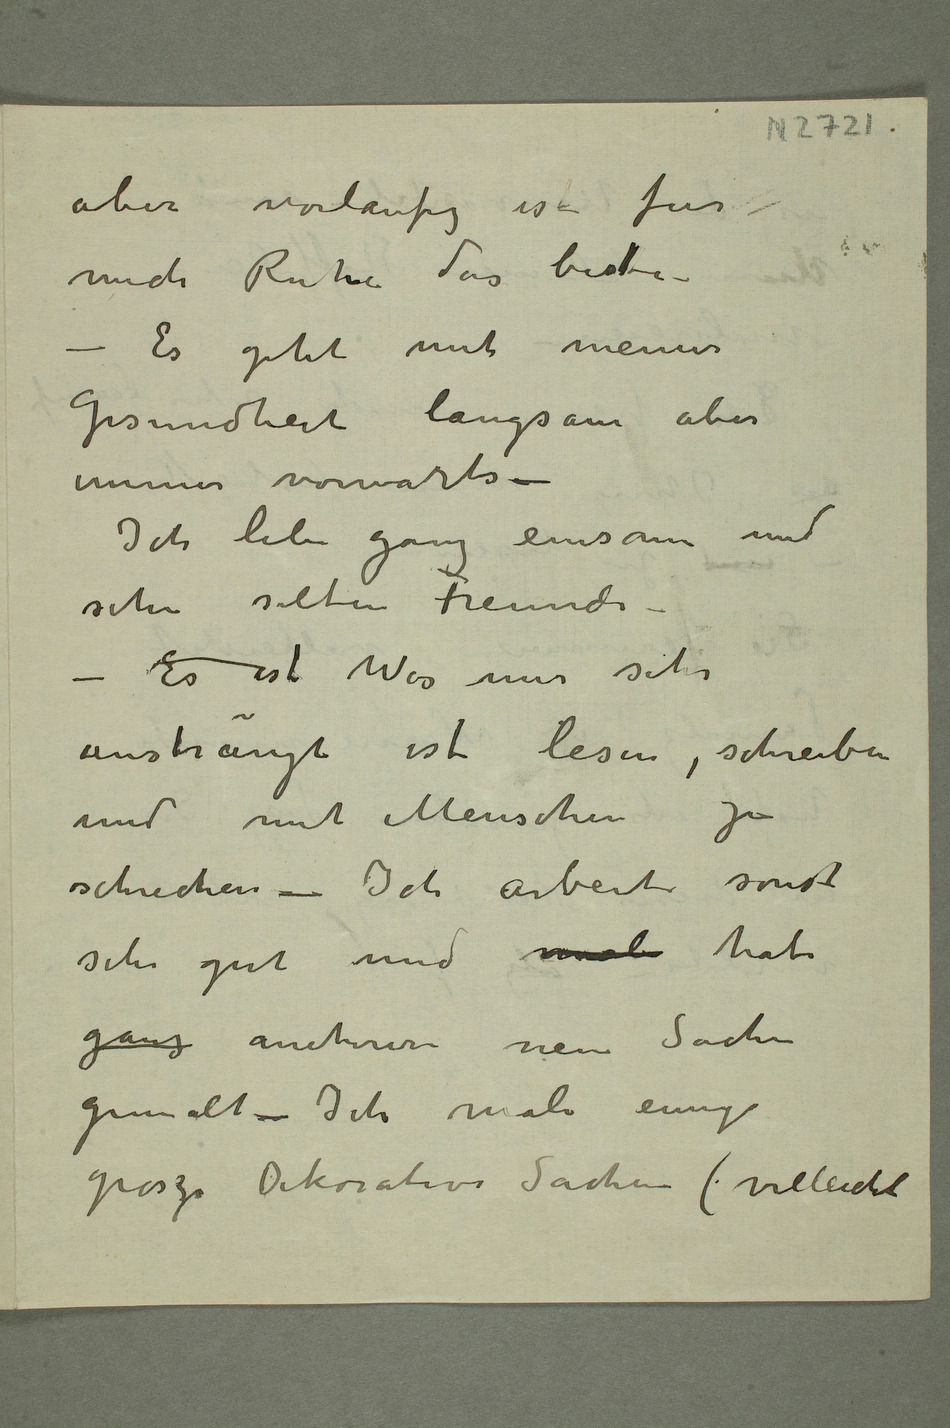 N 2721.
aber vorlaufig ist fur
mich Ruhe das beste –
– Es geht mit meiner
Gesundheit langsam aber
immer vorwarts –
Ich lebe ganz einsam und
sehe selten Freunde –
– Es ist Was mir sehr
ansträngt ist lesen, schreiben
und mit Menschen zu
schrechen – Ich arbeite sonst
sehr gut und male habe
ganz neue Sachen
gemalt – Ich male einige
grosze Dekorative Sachen (villeicht